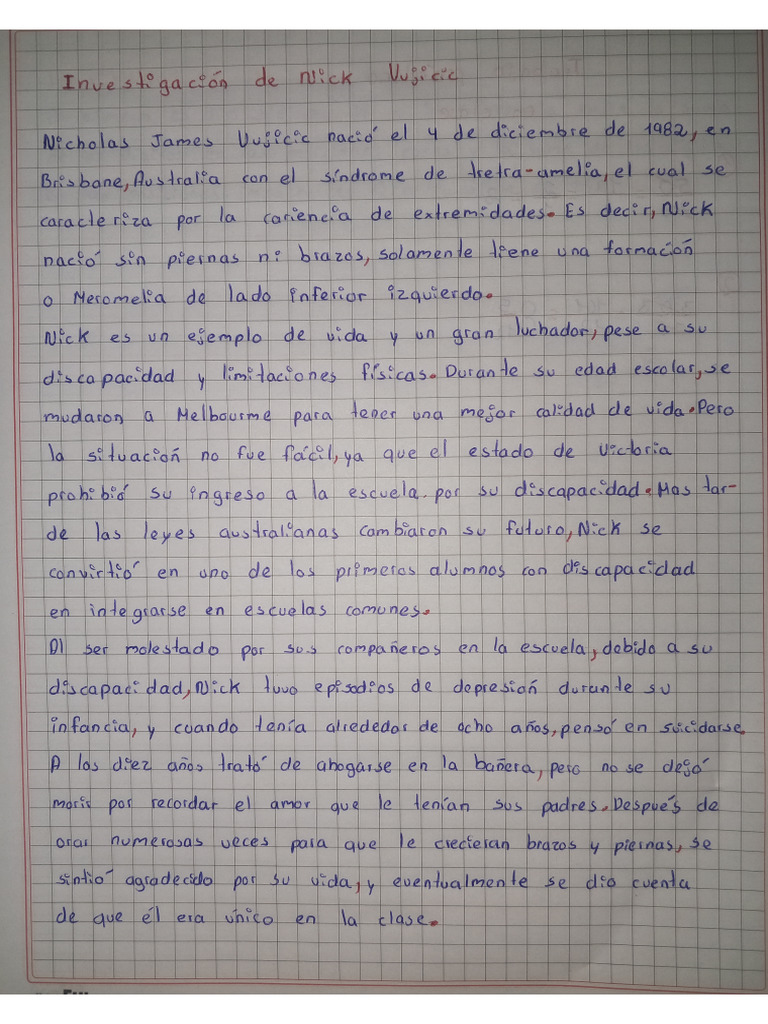 Investigación de Nick Vujicic
Nicholas James Vujicic nació el 4 de diciembre de 1982, en
Brisbane, Australia con el síndrome de tretra-amelia, el cual se
caracteriza por la cariencia de extremidades. Es decir, Nick
nació sin piernas ni brazos, solamente tiene una formación
o Meromelia de lado inferior izquierdo.
Nick es un ejemplo de vida y un gran luchador, pese a su
discapacidad y limitaciones físicas. Durante su edad escolar, se
mudaron a Melbourme para tener una mejor calidad de vida. Pero
la situación no fue fácil, ya que el estado de Victoria
prohibió su ingreso a la escuela por su discapacidad. Mas tar-
de las leyes australianas cambiaron su futuro, Nick se
convirtió en uno de los primeros alumnos con discapacidad
en integrarse en escuelas comunes.
Al ser molestado por sus compañeros en la escuela, debido a su
discapacidad, Nick tuvo episodios de depresión durante su
infancia, y cuando tenía alrededor de ocho años, pensó en suicidarse.
A los diez años trató de ahogarse en la bañera, pero no se dejó
morir por recordar el amor que le tenían sus padres. Después de
orar numerosas veces para que le crecieran brazos y piernas, se
sintió agradecido por su vida, y eventualmente se dio cuenta
de que él era único en la clase.